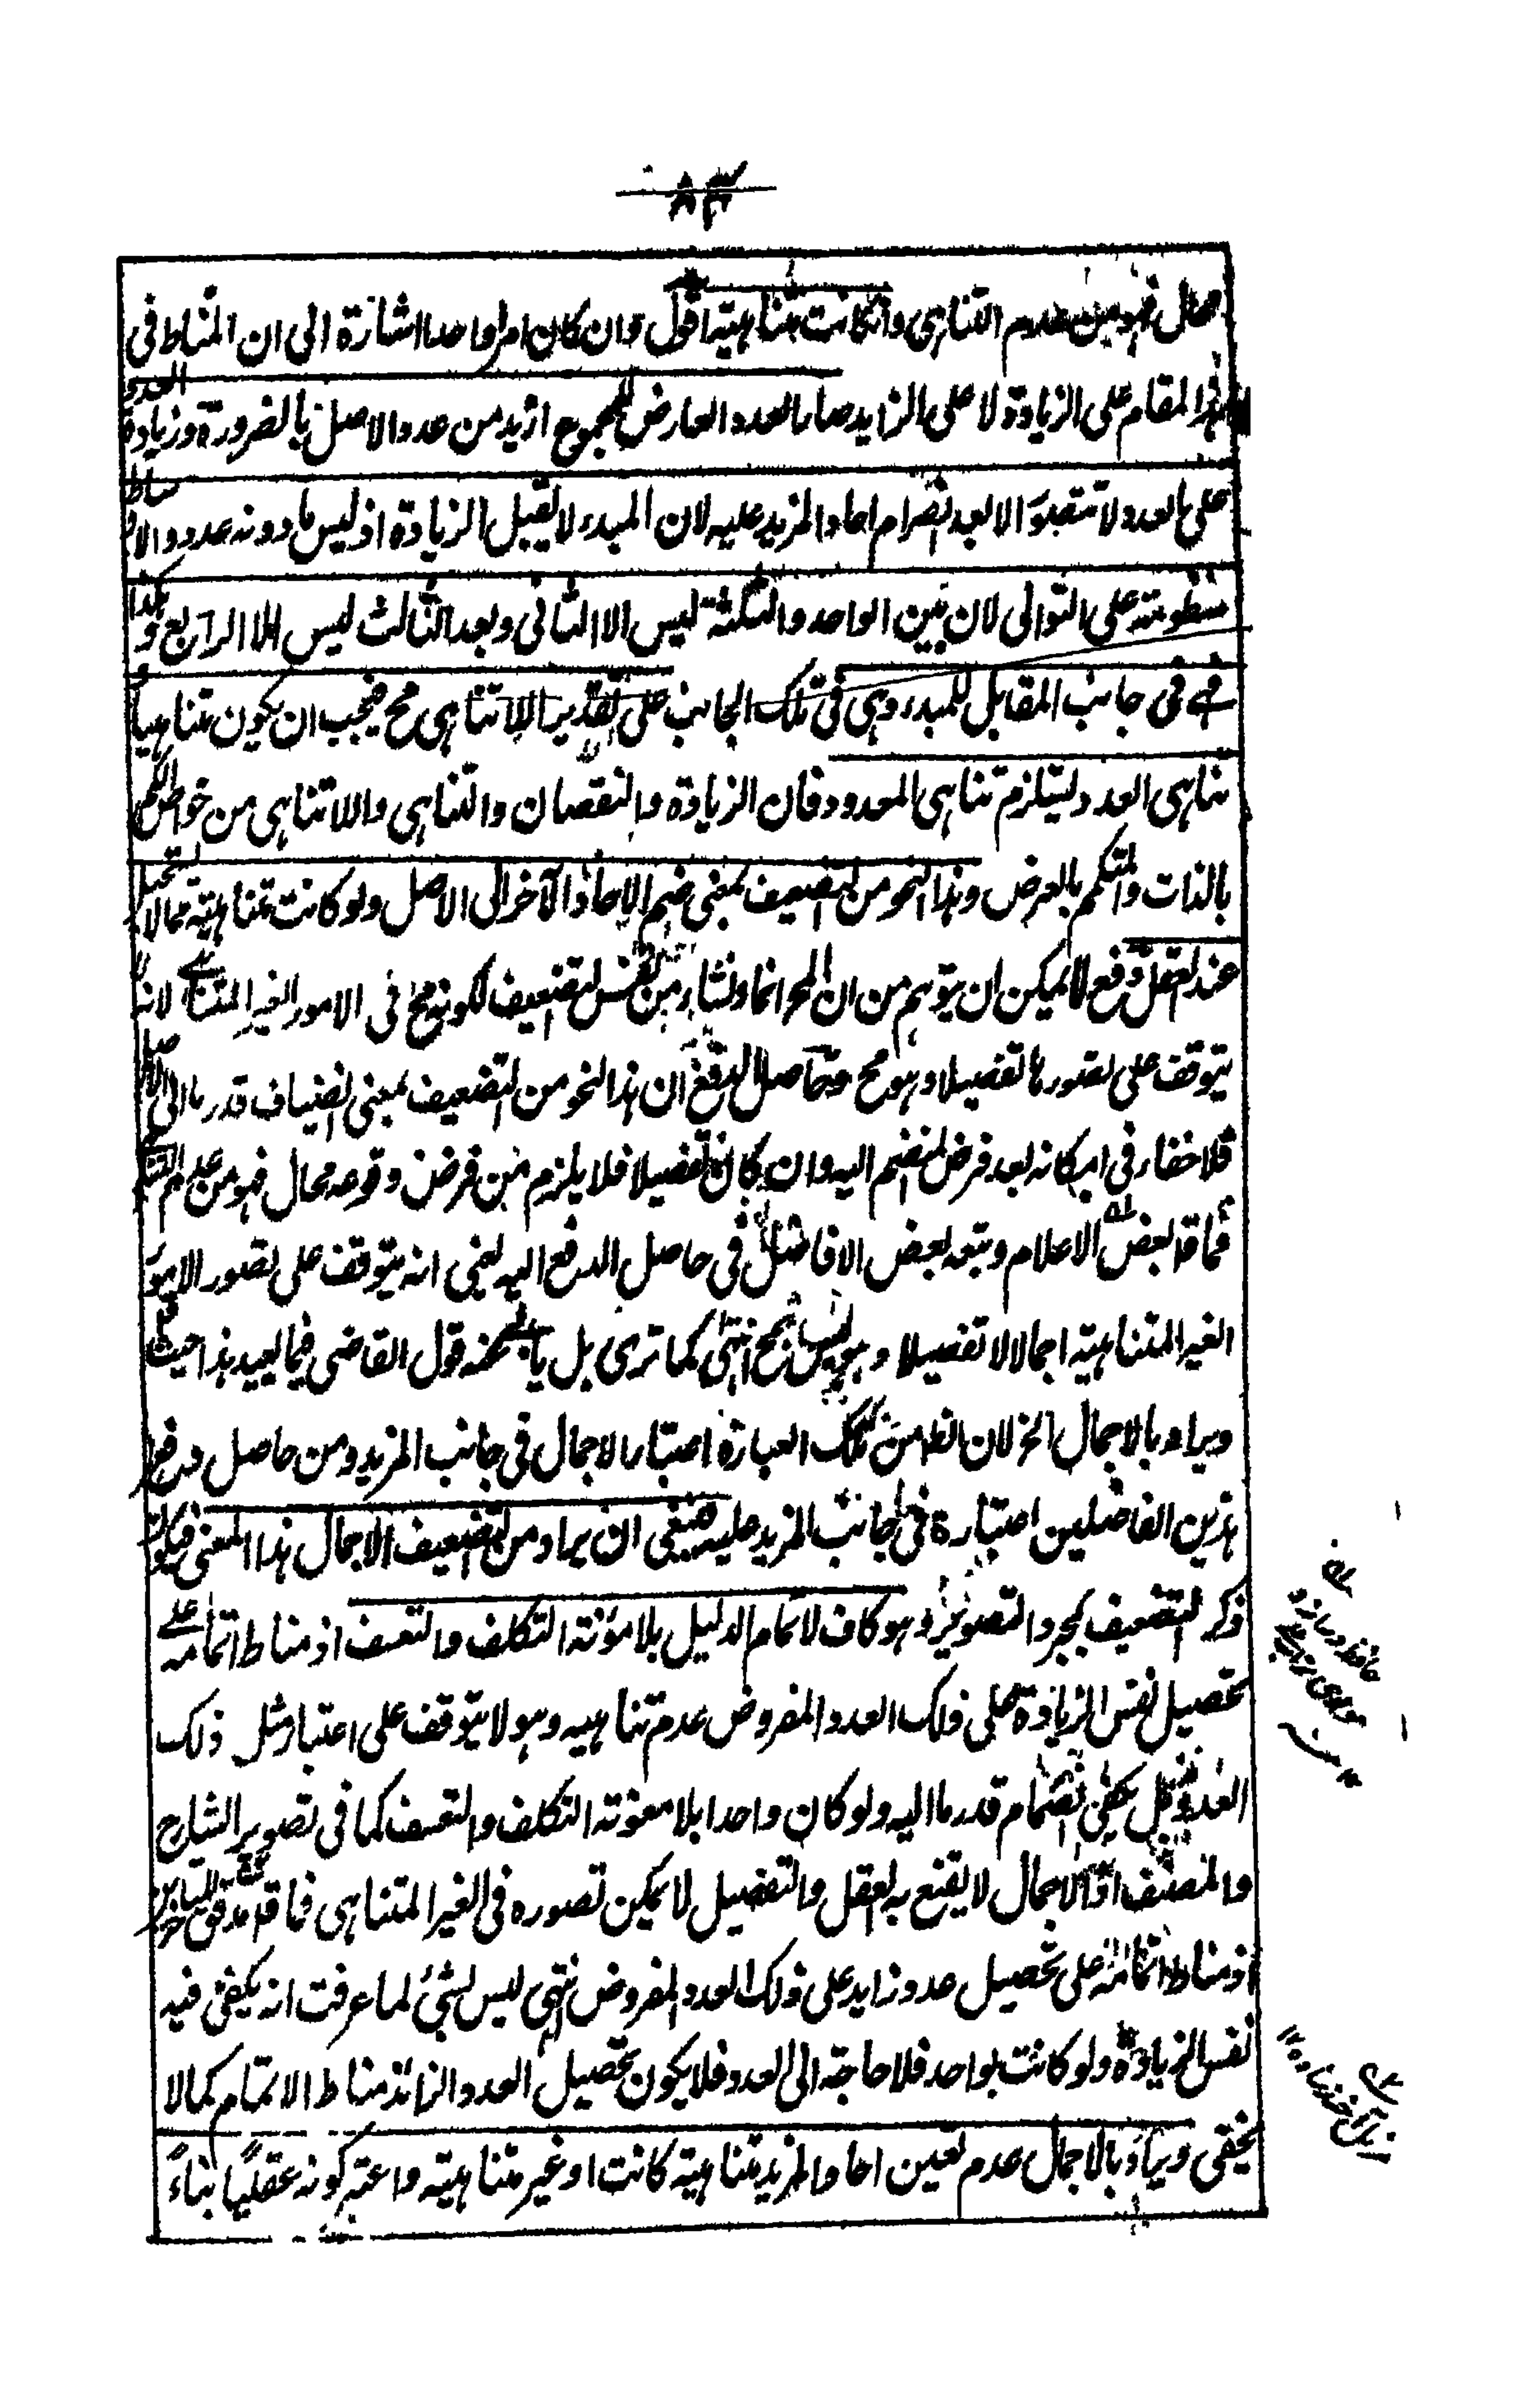 ٨٣
محال فهو من عدم التناهي وان كانت متناهية اقول وان كان امرا واحدا اشارة الى ان المناط في
هذا المقام على الزيادة لا على الزايد صار العدد العارض للمجموع ازيد من عدد الاصل بالضرورة وزيادة العدد
على العدد لا تتصور الا بعد انصرام احاد المزيد عليه لان المبدء لا يقبل الزيادة اذ ليس ما دونه عدد والاوساط
منظومة على التوالي لان بين الواحد والثلثة ليس الا الثاني وبعد الثالث ليس الا الرابع وهكذا
فهي في جانب المقابل للمبدء وهي في تلك الجانب على تقدير اللاتناهي مح فيجب ان يكون متناهيا و
تناهي العدد يستلزم تناهي المعدود فان الزيادة والنقصان والتناهي واللاتناهي من خواص الكم
بالذات والمتكمم بالعرض وهذا النحو من التضعيف بمعنى ضم الاحاد الآخر الى الاصل ولو كانت متناهية مما لا يستحيل
عند العقل دفع لما يمكن ان يتوهم من ان المح انما نشاء من نفس التضعيف لكونه مح في الامور الغير المتناهية لانه
يتوقف على تصورها تفصيلا وهو مح وحاصل الدفع ان هذا النحو من التضعيف بمعنى انضياف قدر ما الى الاصل
فلا خفاء في امكانه بعد فرض المنضم اليه وان كان تفصيلا فلا يلزم من فرض وقوعه محال فهو من عدم التناهي
فما قال بعض الاعلام وتبعه بعض الافاضل في حاصل الدفع اليه يعني انه يتوقف على تصور الامور
الغير المتناهية اجمالا لا تفصيلا وهو ليس بمح انتهى كما ترى بل يأبى عنه قول القاضي فيما بعيد هذا حيث قال
ويراد بالاجمال الخ لان الظ من تلك العبارة اعتبار الاجمال في جانب المزيد ومن حاصل دفع
هذين الفاضلين اعتباره في جانب المزيد عليه فينبغي ان يراد من التضعيف الاجمال هذا المعنى فيكون
ذكر التضعيف بمجرد التصوير وهو كاف لاتمام الدليل بلا مؤنة التكلف والتعسف اذ مناط اتمامه على
تحصيل نفس الزيادة على ذلك العدد المفروض عدم تناهيه وهو لا يتوقف على اعتبار مثل ذلك
العدد بل يكفي انضمام قدر ما اليه ولو كان واحدا بلا معونة التكلف والتعسف كما في تصوير الشارح
والمصنف اذ الاجمال لا يقنع به العقل والتفصيل لا يمكن تصوره في الغير المتناهي فما قال مدقق
اذ مناط اتمامه على تحصيل عدد زايد على ذلك العدد المفروض انتهى ليس بشئ لما عرفت انه يكفي فيه
نفس الزيادة ولو كانت بواحد فلا حاجة الى العدد فلا يكون تحصيل العدد الزائد مناط الاتمام كما لا
يخفى ويراد بالاجمال عدم تعين احاد المزيد متناهية كانت او غير متناهية واعتبر كونه عقليا بناءً